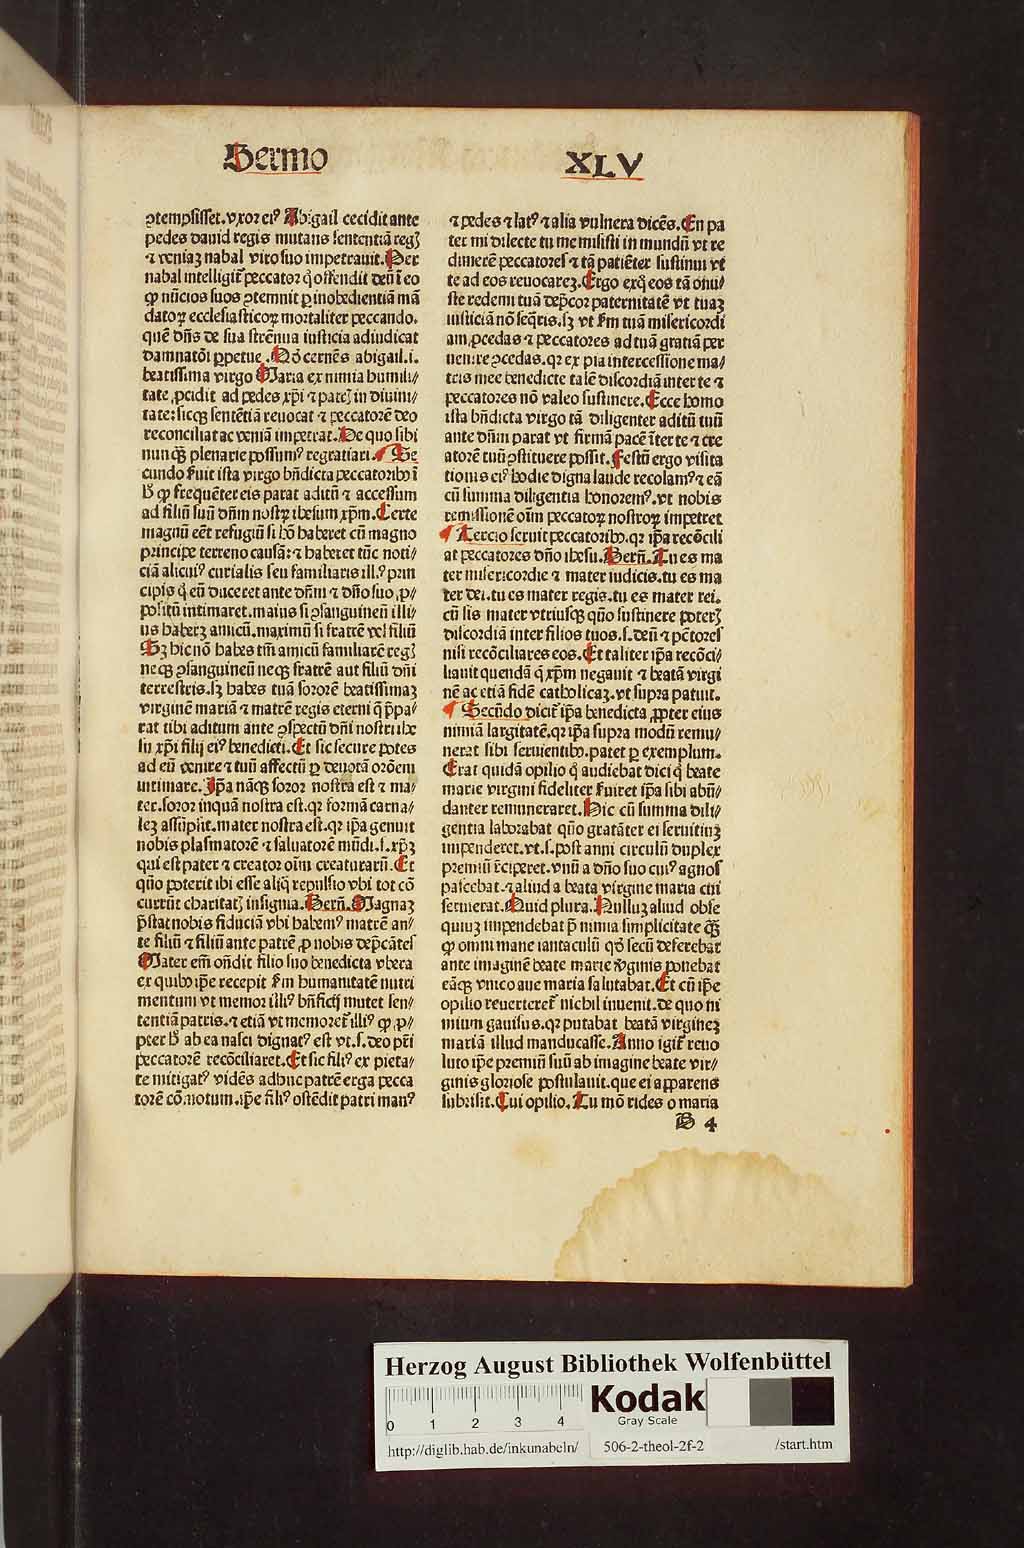 Sermo XLV
ꝯtempsisset. vxor eiꝰ Abigail cecidit ante
pedes dauid regis mutans sententiā regꝭ
⁊ veniaꝫ nabal viro suo impetrauit. Per
nabal intelligit᷑ peccator q̇ offendit deū ī eo
ꝙ nūcios suos ꝯtemnit ꝑ inobedientiā mā
datoꝝ ecclesiasticoꝝ mortaliter peccando.
quē dn̄s de sua strēnua iusticia adiudicat
damnatōi ꝑpetue. Qd̄ cernēs abigail .i.
beatissima virgo Maria ex nimia humili⸗
tate ꝓcidit ad pedes xp̄i ⁊ patꝭ in diuini⸗
tate: sicqꝫ sentētiā reuocat ⁊ peccatorē deo
reconciliat ac veniā impetrat. De quo sibi
nunqꝫ plenarie possumꝰ regratiari. Se
cundo ẜuit ista virgo bn̄dicta peccatoribꝰ ī
hͦ ꝙ frequēter eis parat aditū ⁊ accessum
ad filiū suū dn̄m nostꝝ ihesum xp̄m. Certe
magnū eēt refugiū si hō haberet cū magno
principe terreno causā: ⁊ haberet tūc noti⸗
ciā alicuiꝰ curialis seu familiaris illꝰ prin
cipis q̇ eū duceret ante dn̄m ⁊ dn̄o suo ꝓ⸗
positū intimaret. maius si ꝯsanguineū illi⸗
us haberꝫ amicū. maximū si fratrē vel filiū
Sꝫ hic nō habes tm̄ amicū familiarē regꝭ
neqꝫ ꝯsanguineū neqꝫ fratrē aut filiū dn̄i
terrestris. sꝫ habes tuā sororē beatissimaꝫ
virginē mariā ⁊ matrē regis eterni q̄ p̄pa⸗
rat tibi aditum ante ꝯspectū dn̄i nostri ihe
su xp̄i filij eiꝰ benedicti. Et sic secure potes
ad eū venire ⁊ tuū affectū ꝑ deuotā orōem
intimare. Ip̄a nāqꝫ soror nostra est ⁊ ma⸗
ter. soror inquā nostra est. qꝛ formā carna⸗
leꝫ assūpsit. mater nostra est. qꝛ ip̄a genuit
nobis plasmatorē ⁊ saluatorē mūdi .s. xp̄ꝫ
qui est pater ⁊ creator oīm creaturarū. Et
quō poterit ibi esse aliq̄ repulsio vbi tot cō
currūt charitatꝭ insignia. Bern̄. Magnaꝫ
p̄stat nobis fiduciā vbi habemꝰ matrē an⸗
te filiū ⁊ filiū ante patrē ꝓ nobis dep̄cātes
Mater em̄ on̄dit filio suo benedicta vbera
ex quibꝰ ip̄e recepit ẜm humanitatē nutri
mentum vt memor illiꝰ bn̄ficij mutet sen⸗
tentiā patris. ⁊ etiā vt memoret᷑ illiꝰ ꝙ ꝓ⸗
pter hͦ ab ea nasci dignatꝰ est vt .s. deo pr̄i
peccatorē recōciliaret. Et sic filiꝰ ex pieta⸗
te mitigatꝰ vidēs adhuc patrē erga pecca
torē cōmotum. ip̄e filiꝰ ostēdit patri manꝰ
⁊ pedes ⁊ latꝰ ⁊ alia vulnera dicēs. En pa
ter mi dilecte tu me misisti in mundū vt re
dimerē peccatores ⁊ tā patiēter sustinui vt
te ad eos reuocareꝫ. Ergo ex q̊ eos tā onu⸗
ste redemi tuā dep̄cor paternitatē vt tuaꝫ
iusticiā nō seq̄ris. sꝫ vt ẜm tuā misericordi
am ꝓcedas ⁊ peccatores ad tuā gratiā per
uenire ꝯcedas. qꝛ ex pia intercessione ma⸗
tris mee benedicte talē discordiā inter te ⁊
peccatores nō valeo sustinere. Ecce homo
ista bn̄dicta virgo tā diligenter aditū tuū
ante dn̄m parat vt firmā pacē īter te ⁊ cre
atorē tuū ꝯstituere possit. Festū ergo visita
tionis eiꝰ hodie digna laude recolamꝰ ⁊ eā
cū summa diligentia honoremꝰ. vt nobis
remissionē oīm peccatoꝝ nostroꝝ impetret
Tercio seruit peccatoribꝰ. qꝛ ip̄a recōcili
at peccatores dn̄o ihesu. Bern̄. Tu es ma
ter misericordie ⁊ mater iudicis. tu es ma
ter dei. tu es mater regis. tu es mater rei.
cū sis mater vtriusqꝫ quō sustinere poterꝭ
discordiā inter filios tuos .s. deū ⁊ pctōres
nisi recōciliares eos. Et taliter ip̄a recōci⸗
liauit quendā q̇ xp̄m negauit ⁊ beatā virgi
nē ac etiā fidē catholicaꝫ. vt supra patuit.
Secūdo dicit᷑ ip̄a benedicta ꝓpter eius
nimiā largitatē. qꝛ ip̄a supra modū remu⸗
nerat sibi seruientibꝰ. patet ꝑ exemplum.
Erat quidā opilio q̇ audiebat dici q̇ beate
marie virgini fideliter ẜuiret ip̄a sibi abū⸗
danter remuneraret. Hic cū summa dili⸗
gentia laborabat quō gratāter ei seruitiuꝫ
impenderet. vt .s. post anni circulū duplex
premiū rēciperet. vnū a dn̄o suo cuiꝰ agnos
pascebat. ⁊ aliud a beata virgine maria cui
seruierat. Quid plura. Nulluꝫ aliud obse
quiuꝫ impendebat p̄ nimia simplicitate qꝫ
ꝙ omni mane iantaculū qd̄ secū deferebat
ante imaginē beate marie v̇ginis ponebat
eāqꝫ vnico aue maria salutabat. Et cū ip̄e
opilio reuerteret᷑ nichil inuenit. de quo ni
mium gauisus. qꝛ putabat beatā virgineꝫ
mariā illud manducasse. Anno igit᷑ reuo
luto ip̄e premiū suū ab imagine beate vir⸗
ginis gloriose postulauit. que ei apparens
subrisit. Cui opilio. Tu mō rides o maria
B 4
Herzog August Bibliothek Wolfenbüttel
0 1 2 3 4
Kodak
Gray Scale
http://diglib.hab.de/inkunabeln/ 506-2-theol-2f-2 /start.htm